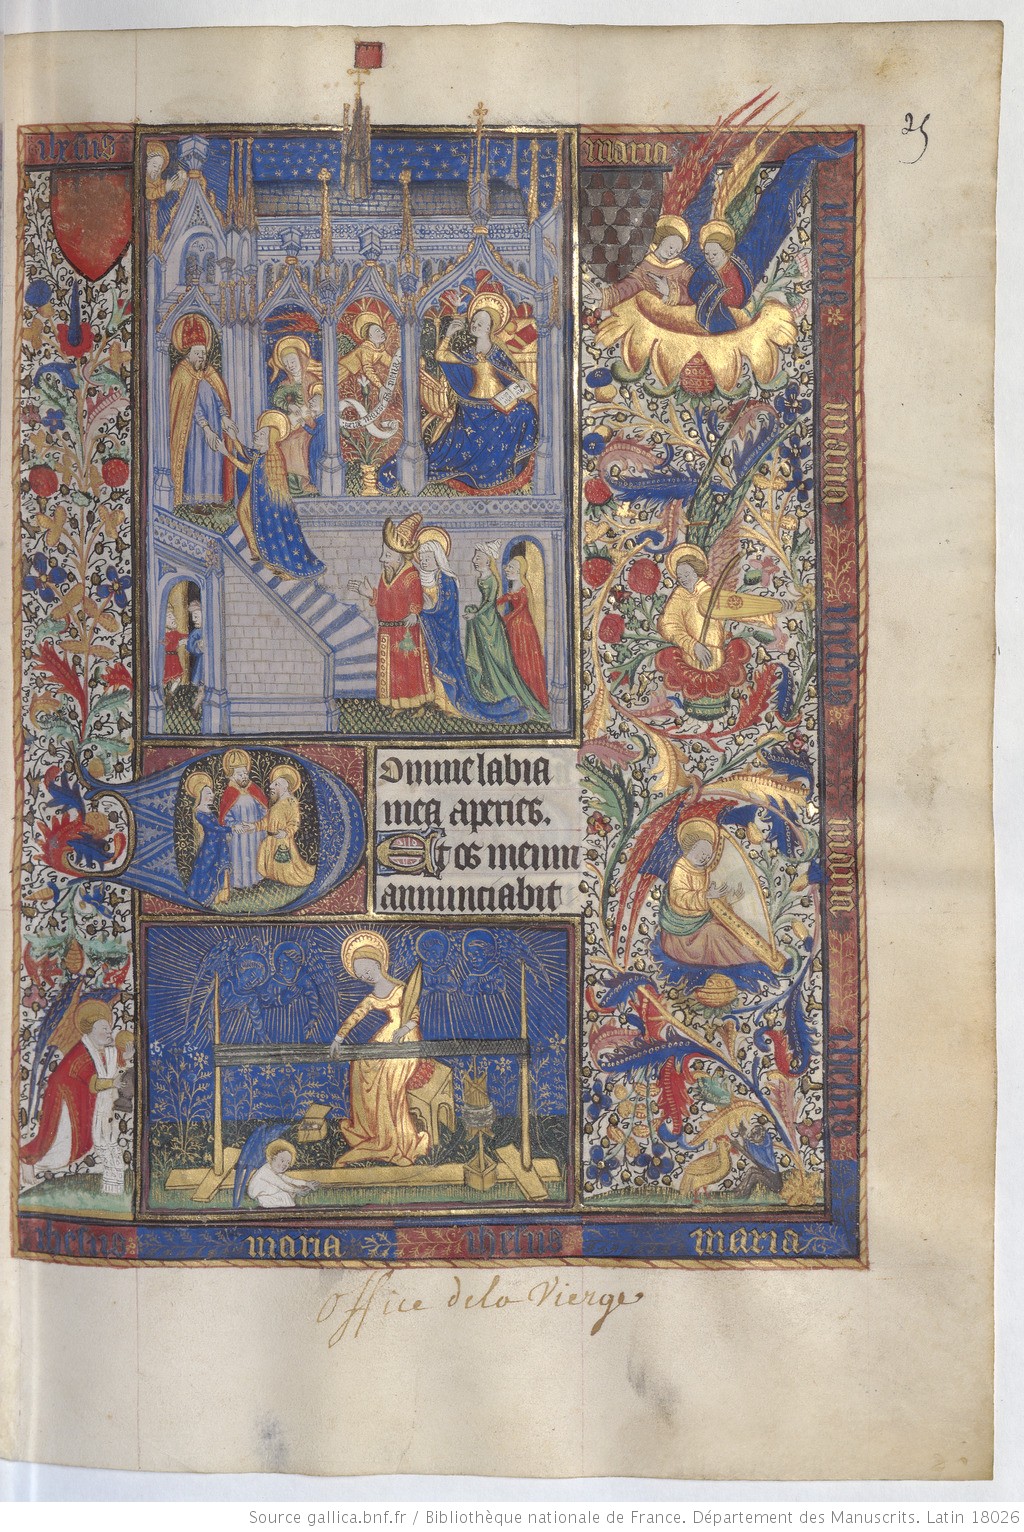 25
maria
Domine labia
mea aperies.
Et os meum
annunciabit
maria
maria
maria
ihesus
maria
ihesus
maria
Office dela Vierge
Source gallica.bnf.fr / Bibliothèque nationale de France. Département des Manuscrits. Latin 18026